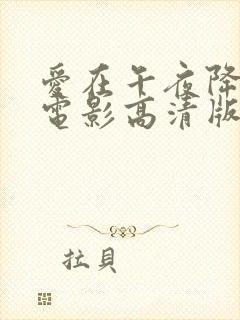 愛在午夜降
電影高清版
拉貝